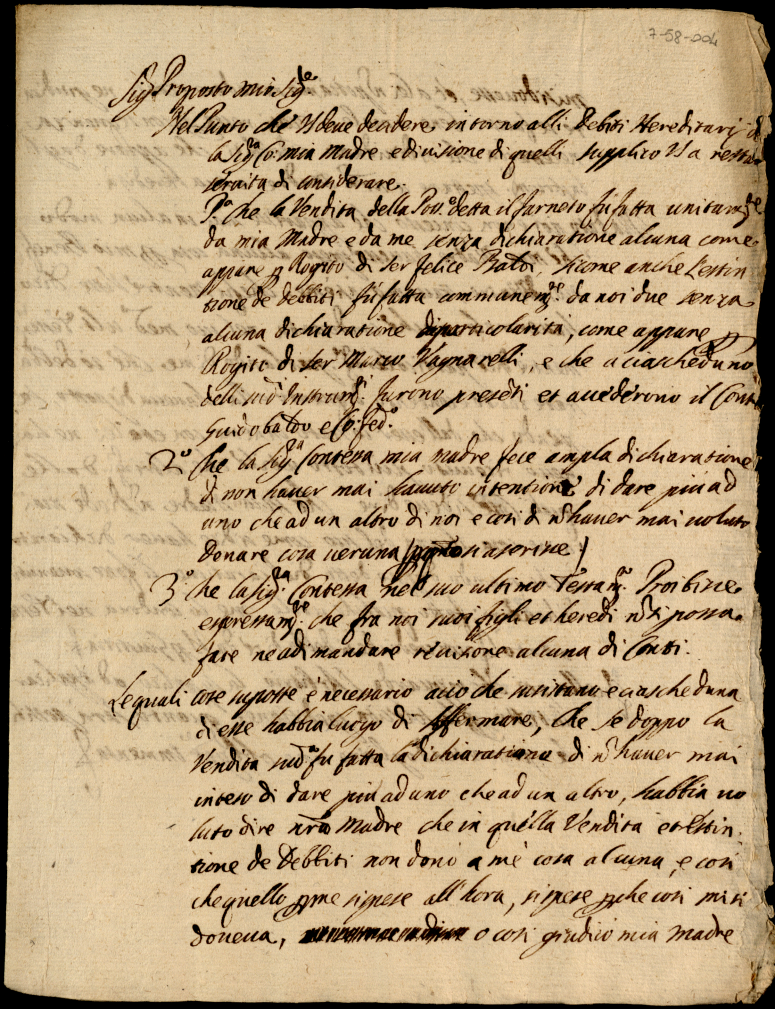 7-58-004
Sig.r Proposto mio Sig.re
Nel Punto che VS deve decidere intorno alli Debiti Hereditarij
la Sig.ra Co: mia Madre e divisione di quelli supplico VS a restar
servita di considerare.
P.o che la Vendita della Pos.e detta il farneto fù fatta unitam.te
da mia Madre e da me senza dichiaratione alcuna come
appare p Rogito di ser felice, sicome anche l'estin
tione de debbiti fù fatta communem.te da noi due senza
alcuna dichiaratione di particolarità, come appare p
Rogito di ser Marco Vagnarelli, e che a ciascheduno
delli sud.i Instrum.ti furono preseti et accederono il Conte
Guidobaldo e Co: fed.o
2.o Che la Sig.ra Contessa mia madre fece ampla dichiaratione
di non haver mai havuto intentione di dare più ad
uno che ad un altro di noi e così di nō haver mai voluto
donare cosa veruna
3.o Che la Sig.ra Contessa nel suo ultimo Testam.to Proibisse
espressam.te che fra noi suoi figli et heredi nō si possa
fare ne adimandare revisione alcuna di Conti.
Le quali cose suposte é necessario acio che e ciascheduna
di esse habbia luogo di affermare, che se doppo la
Vendita sud.a fu fatta la dichiaratione di nō haver mai
inteso di dare più ad uno che ad un altro, habbia vo
luto dire nr̄a Madre che in quella Vendita et Estin
tione de Debbiti non donò a mè cosa alcuna, e così
che quello p me si prese all'hora, si prese p che così mi si
doveva, o così giudicò mia Madre